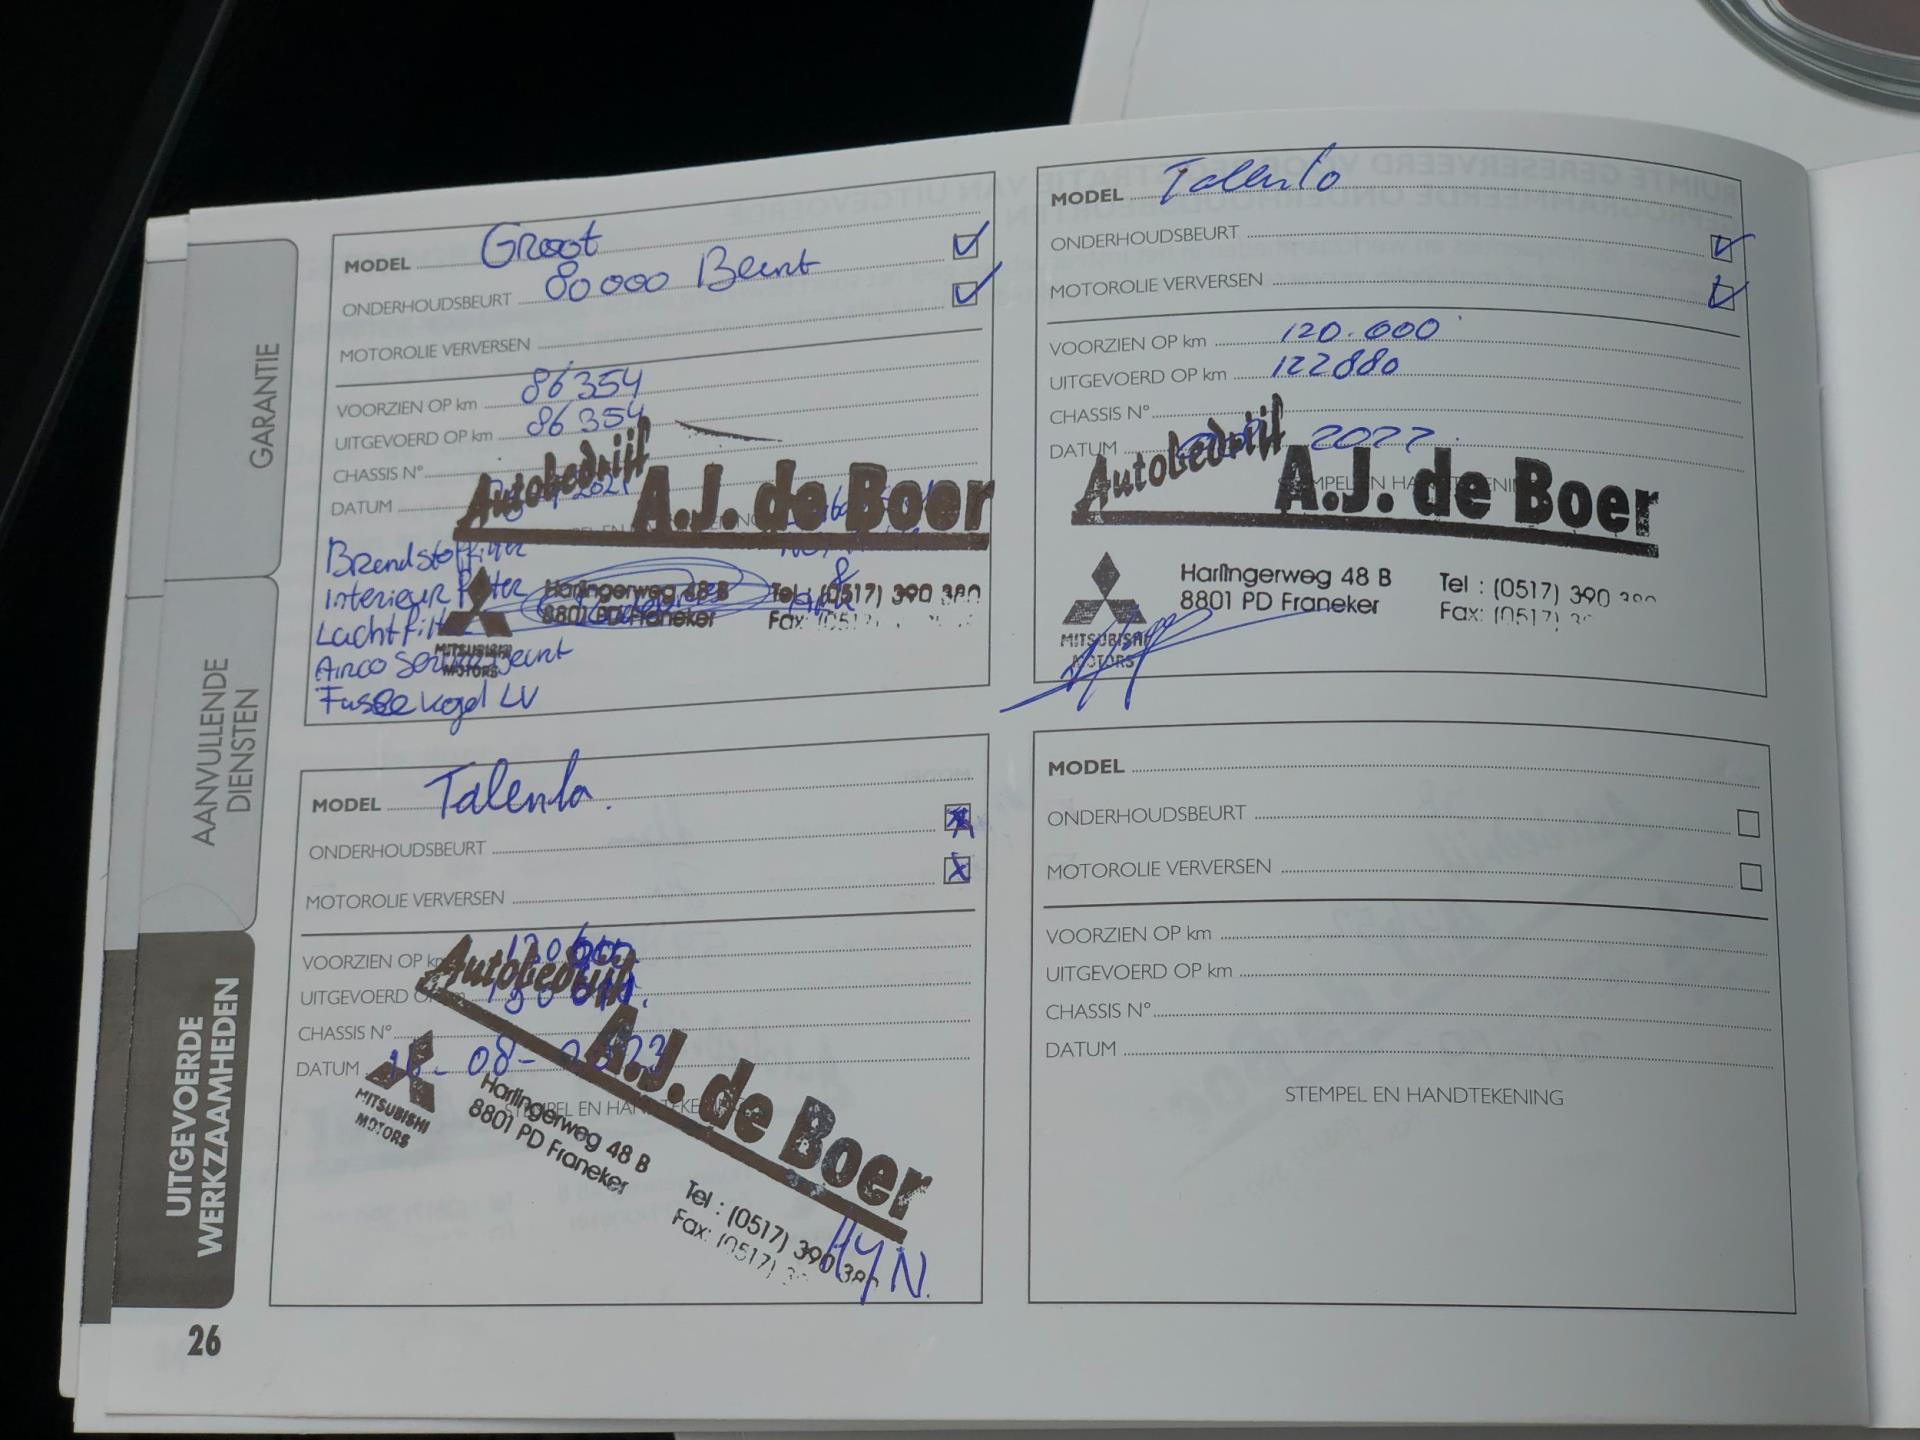 GARANTIE
AANVULLENDE
DIENSTEN
UITGEVOERDE
WERKZAAMHEDEN
26
MODEL Groot
ONDERHOUDSBEURT 80 000 Beurt
MOTOROLIE VERVERSEN
VOORZIEN OP km 86354
UITGEVOERD OP km 86354
CHASSIS N°
DATUM 2021
Autobedrijf A.J. de Boer
Brandstoffilter
Interieur Filter
Luchtfilter
Airco Servicebeurt
Fuseekogel LV
Harlingerweg 48 B
8801 PD Franeker
Tel : (0517) 390 380
Fax: (0517)
MITSUBISHI
MOTORS
MODEL Talento
ONDERHOUDSBEURT
MOTOROLIE VERVERSEN
VOORZIEN OP km 120.000
UITGEVOERD OP km 122880
CHASSIS N°
DATUM 2022
STEMPEL EN HANDTEKENING
Autobedrijf A.J. de Boer
Harlingerweg 48 B
8801 PD Franeker
Tel : (0517) 390
Fax: (0517)
MITSUBISHI
MOTORS
MODEL Talento.
ONDERHOUDSBEURT
MOTOROLIE VERVERSEN
VOORZIEN OP km
UITGEVOERD OP km
CHASSIS N°
DATUM 16-08-2023
STEMPEL EN HANDTEKENING
Autobedrijf
A.J. de Boer
MITSUBISHI
MOTORS
Harlingerweg 48 B
8801 PD Franeker
Tel : (0517) 390 380
Fax: (0517)
HYN.
MODEL
ONDERHOUDSBEURT
MOTOROLIE VERVERSEN
VOORZIEN OP km
UITGEVOERD OP km
CHASSIS N°
DATUM
STEMPEL EN HANDTEKENING